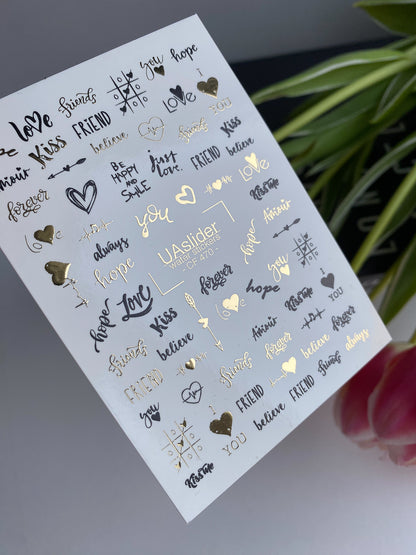 hope
you
friends
love
I
YOU
love
FRIEND
Kiss
believe
friends
Kiss
Amour
BE
HAPPY
AND
SMILE
just
love
FRIEND
believe
forever
love
Kiss Me
love
always
you
Amour
hope
UAslider
water stickers
- CF 470 -
hope
you
hope
love
forever
hope
Kiss Me
I
YOU
Kiss
love
Amour
forever
friends
believe
forever
believe
friends
always
FRIEND
friends
you
FRIEND
FRIEND
believe
I
YOU
Kiss Me